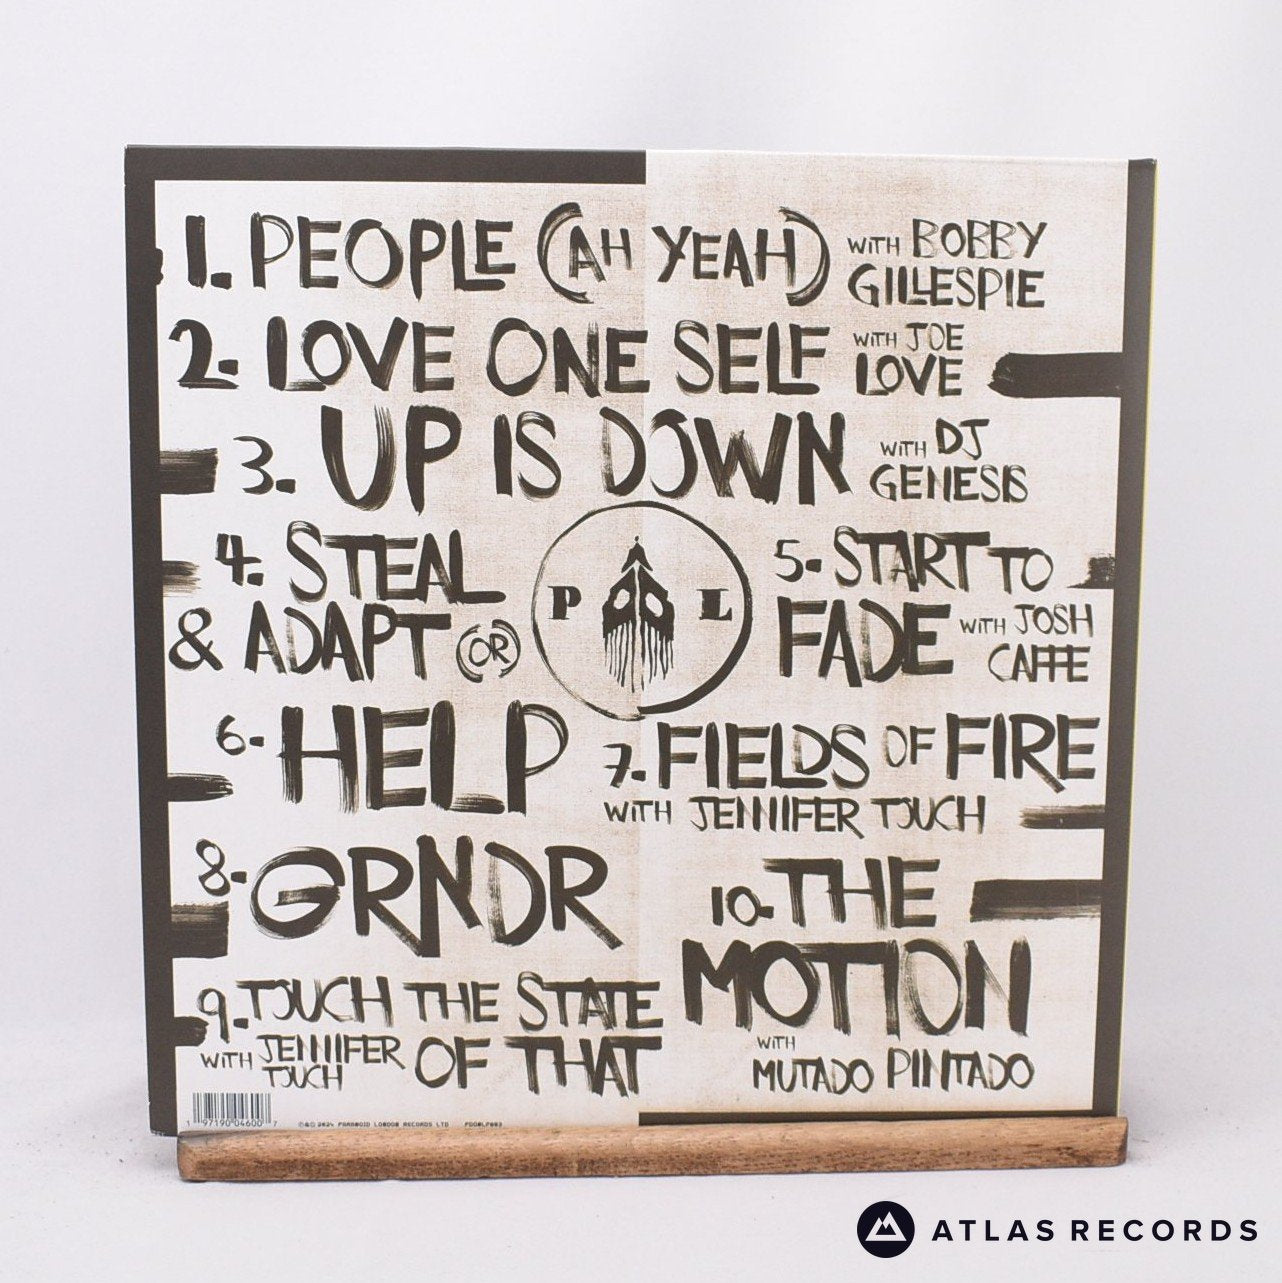 1. PEOPLE (AH YEAH) WITH BOBBY
GILLESPIE
2. LOVE ONE SELF WITH JOE
LOVE
3. UP IS DOWN WITH DJ
GENESIS
4. STEAL
& ADAPT (OR)
P L
5. START TO
FADE WITH JOSH
CAFFE
6. HELP
7. FIELDS OF FIRE
WITH JENNIFER TOUCH
8. GRNDR
9. TOUCH THE STATE
WITH JENNIFER OF THAT
TOUCH
10. THE
MOTION
WITH
MUTADO PINTADO
1 97190 04600 7
℗© 2024 PARANOID LONDON RECORDS LTD PDONLP003
ATLAS RECORDS